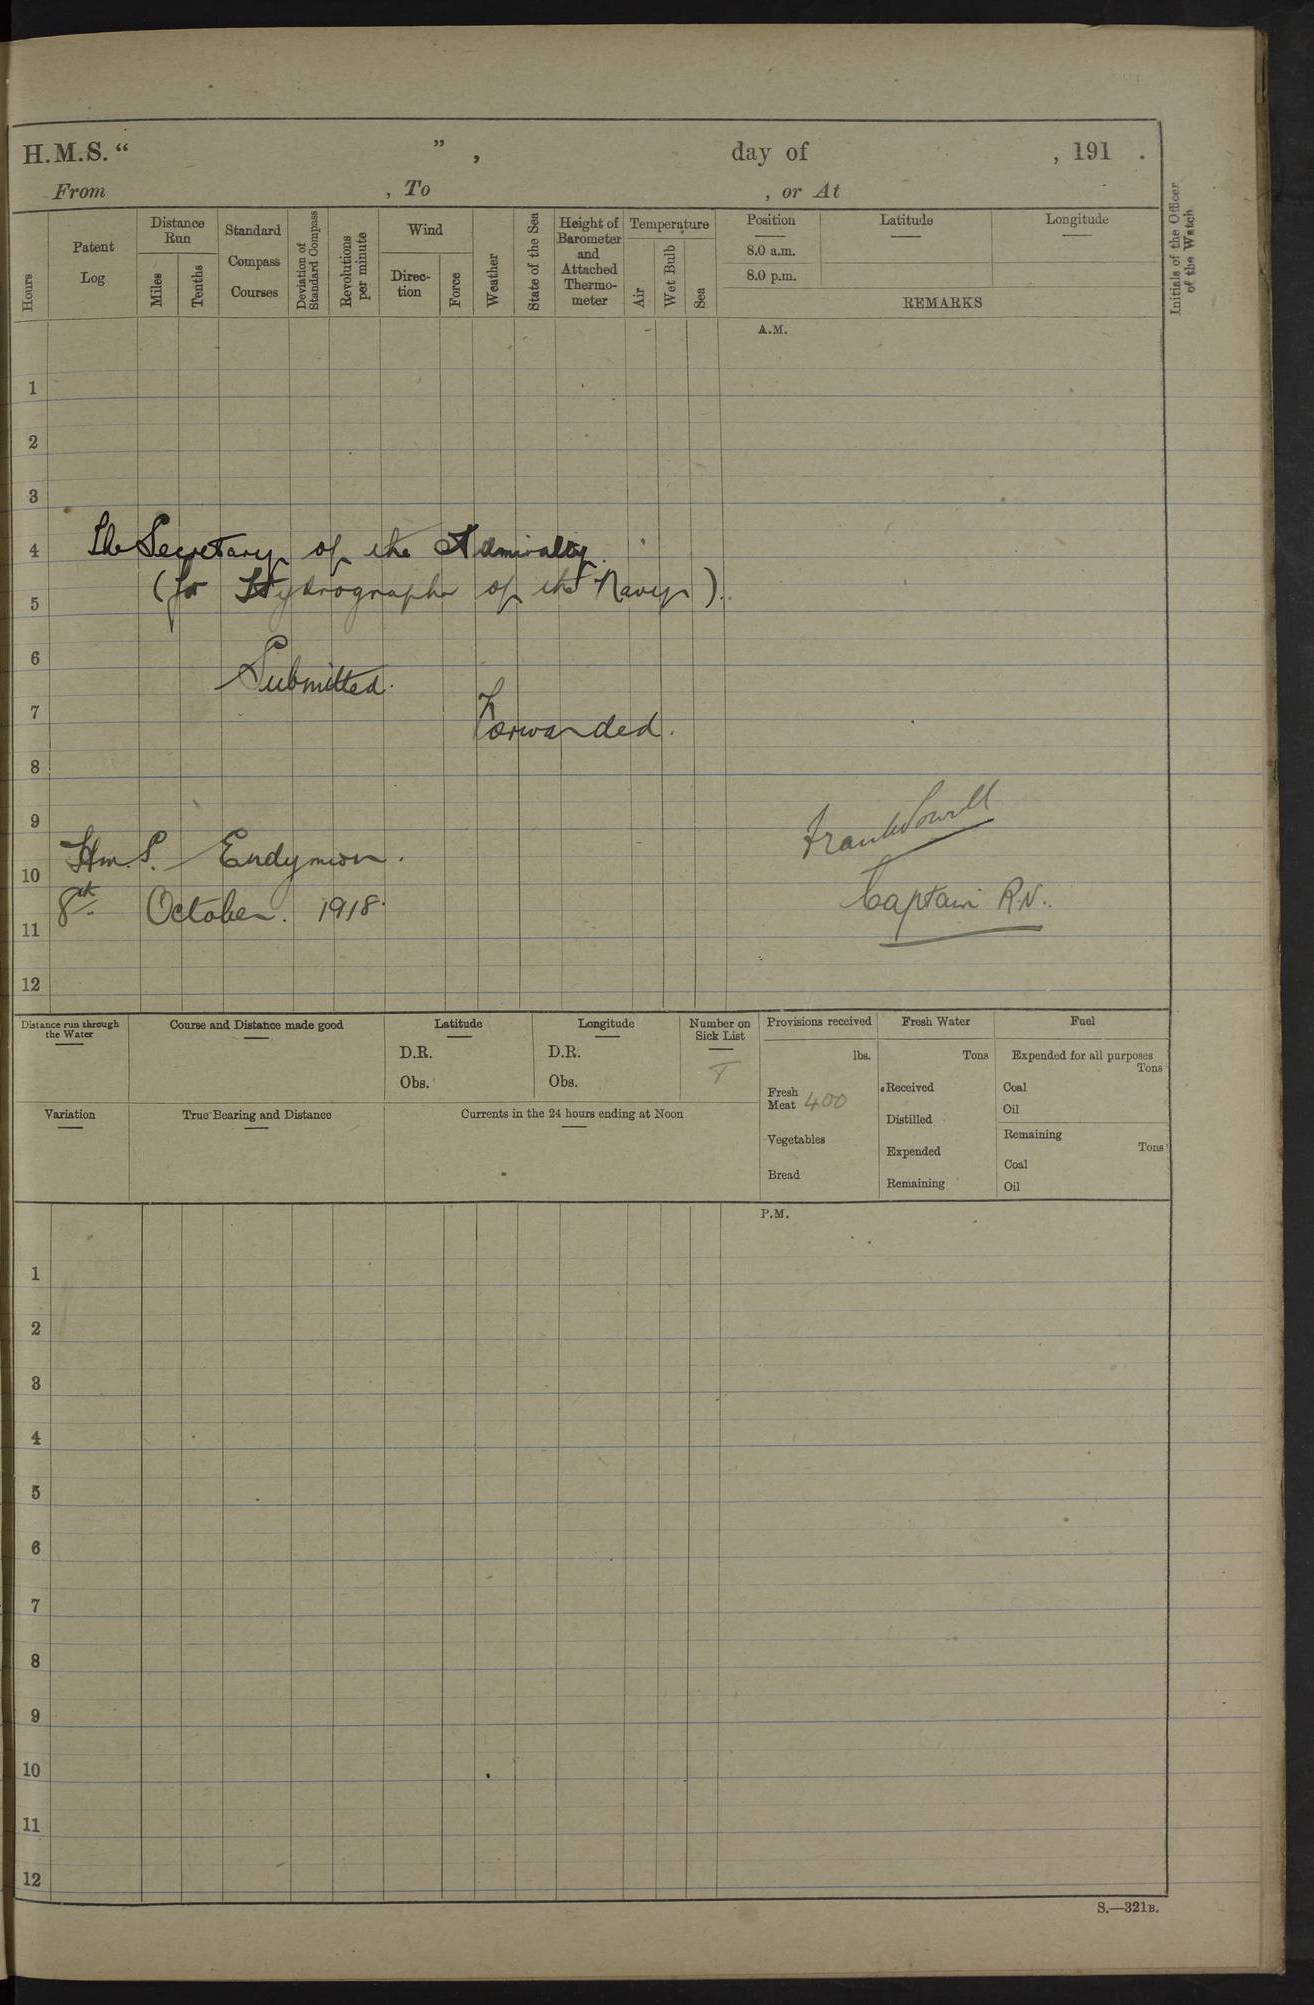 H.M.S. “ ” , day of , 191 .
From , To , or At
Hours
Patent Log
Distance Run
Miles
Tenths
Standard Compass Courses
Deviation of Standard Compass
Revolutions per minute
Wind
Direc-tion
Force
Weather
State of the Sea
Height of Barometer and Attached Thermo-meter
Temperature
Air
Wet Bulb
Sea
Position
8.0 a.m.
8.0 p.m.
Latitude
Longitude
REMARKS
Initials of the Officer of the Watch
A.M.
1
2
3
4
The Secretary of the Admiralty.
(for Hydrographer of the Navy).
5
6
Submitted.
7
Forwarded.
8
9
Frank Powell
H.M.S. Endymion.
10
8th October. 1918.
Captain R.N.
11
12
Distance run through the Water
Course and Distance made good
Latitude
D.R.
Obs.
Longitude
D.R.
Obs.
Number on Sick List
8
Variation
True Bearing and Distance
Currents in the 24 hours ending at Noon
Provisions received
lbs.
Fresh Meat 400
Vegetables
Bread
Fresh Water
Tons
Received
Distilled
Expended
Remaining
Fuel
Expended for all purposes
Tons
Coal
Oil
Remaining
Tons
Coal
Oil
P.M.
1
2
3
4
5
6
7
8
9
10
11
12
S.—321B.